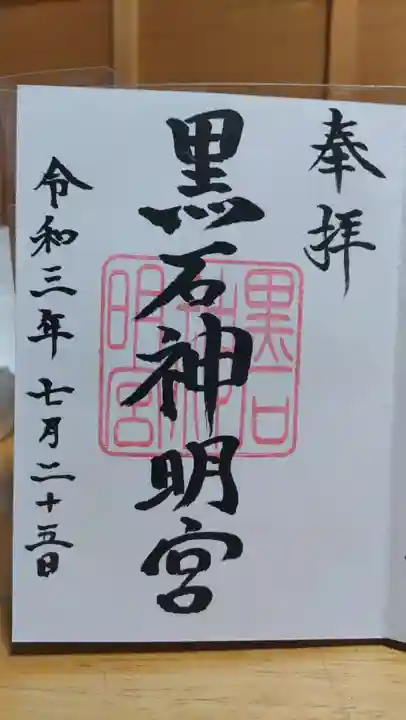 奉拝
黒石神明宮
令和三年七月二十五日
黒石
神
明宮